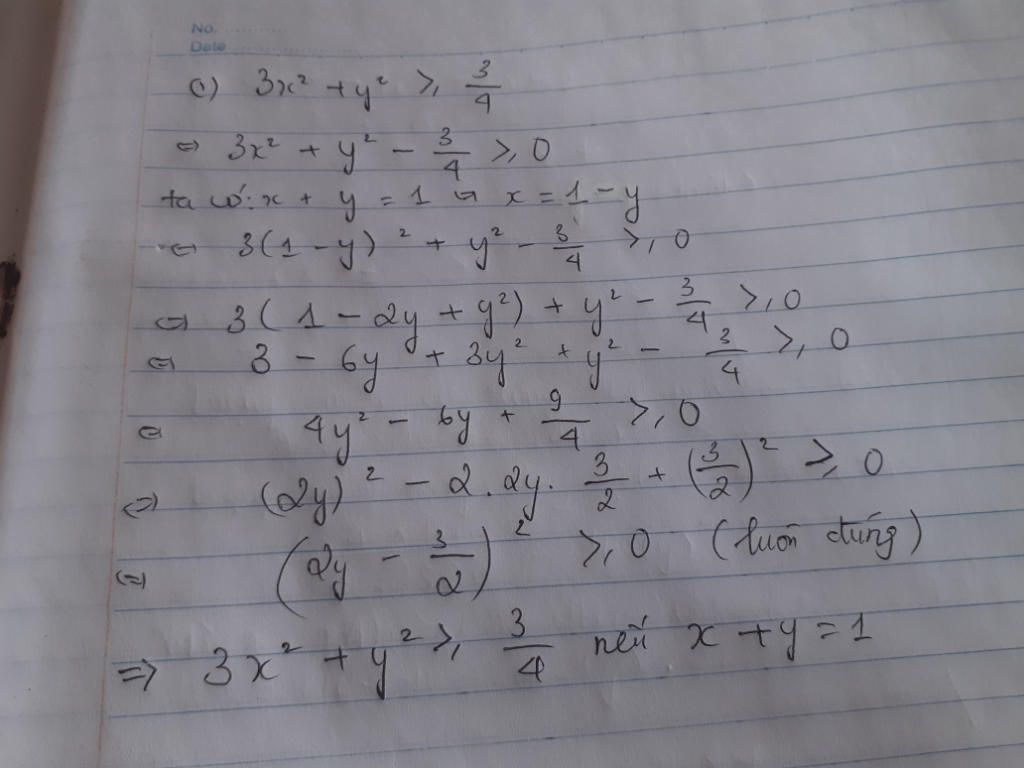 No.
Date
c) 3x² + y² ≥ 3/4
⇔ 3x² + y² - 3/4 ≥ 0
ta có: x + y = 1 ⇔ x = 1 - y
⇔ 3(1 - y)² + y² - 3/4 ≥ 0
⇔ 3(1 - 2y + y²) + y² - 3/4 ≥ 0
⇔ 3 - 6y + 3y² + y² - 3/4 ≥ 0
⇔ 4y² - 6y + 9/4 ≥ 0
⇔ (2y)² - 2.2y. 3/2 + (3/2)² ≥ 0
⇔ (2y - 3/2)² ≥ 0 (luôn đúng)
⇒ 3x² + y² ≥ 3/4 nếu x + y = 1